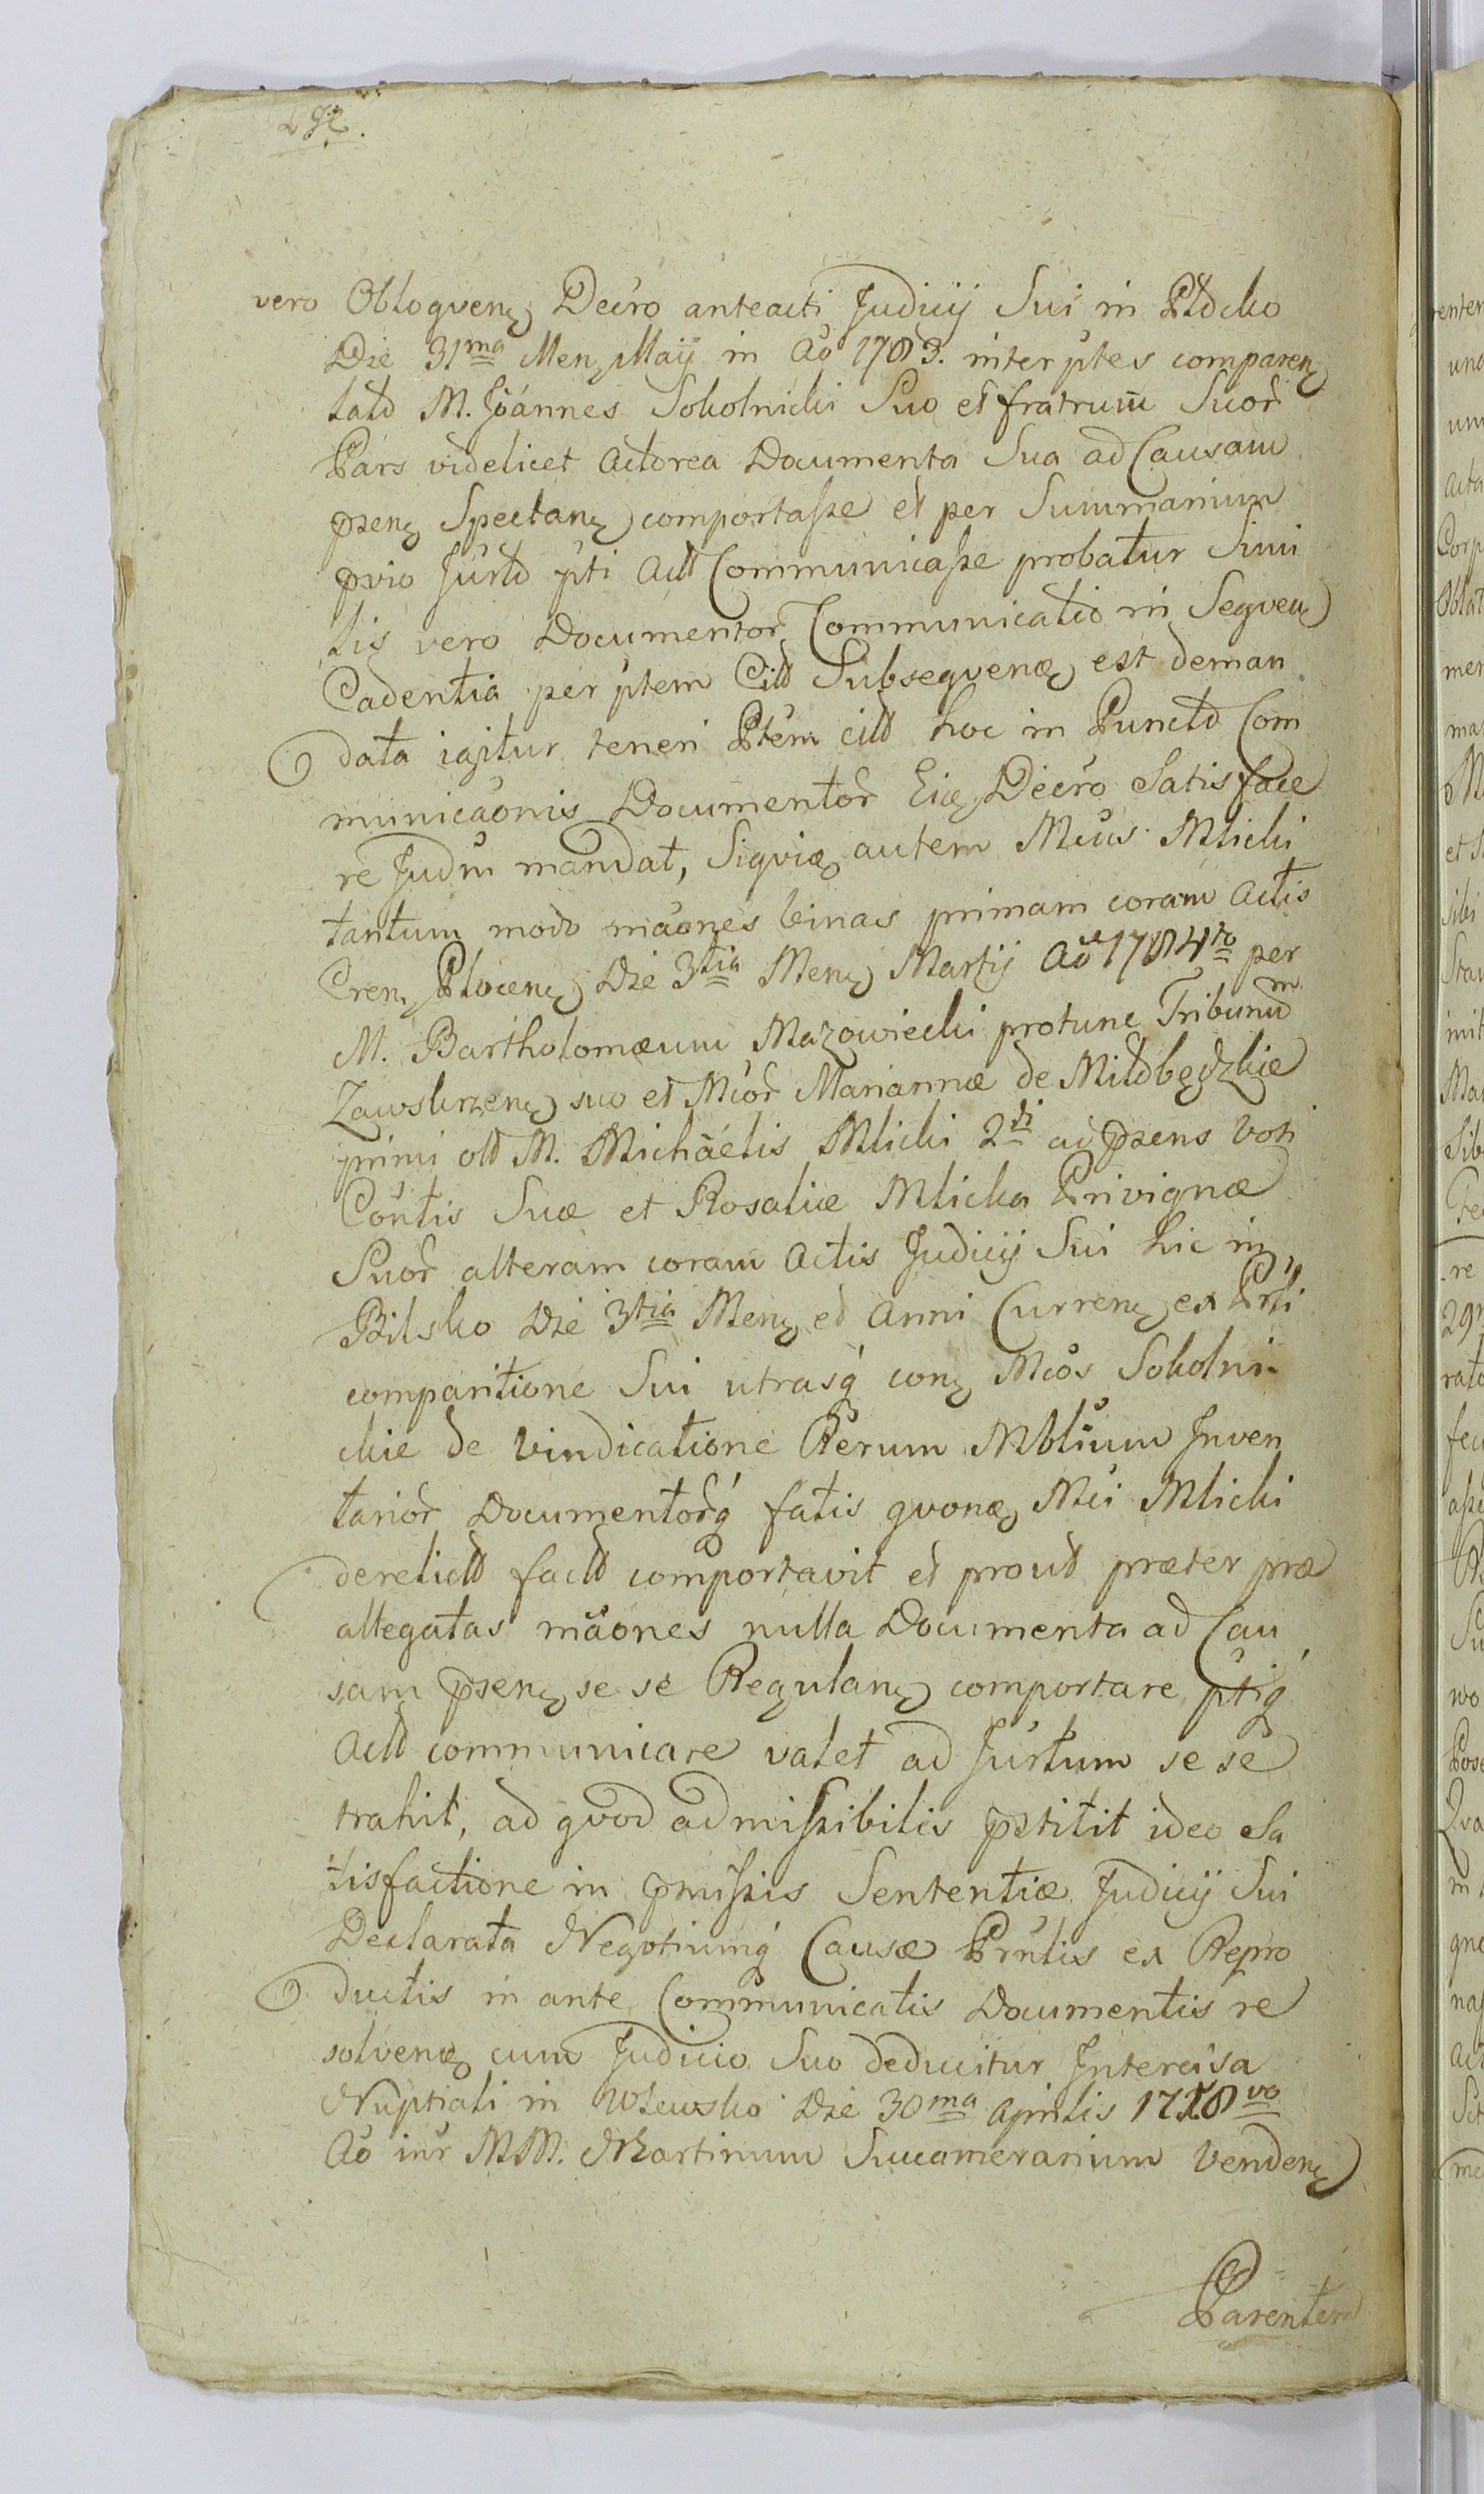 vero Obloqvenꝫ Decro anteacti Judicij Sui in Płocko
Die 31ma Menꝫ Maij in Ao 1783. inter ptes comparenꝫ
tato M. Joannes Sokolnicki Suo et fratrum Suor
Pars videlicet Actorea Documenta Sua ad Causam
psenꝫ Spectanꝫ comportasse et per Summarium
pvio Jurto pti Acto Communicasse probatur Simi
lis vero Documentor Communicatio in Seqvenꝫ
Cadentia per ptem Cito Subseqvenꝫ est deman
data igitur teneri Ptem cito hoc in Puncto Com
municaonis Documentor Eiꝫ Decro Satisface
re Judm mandat, Siqviꝫ autem Mcus Mlicki
tantum modo maones binas primam coram Actis
Crenꝫ Plocenꝫ Die 3tia Menꝫ Martij Ao 1784to per
M. Bartholomæum Mazowiecki protunc Tribunum
Zawskrzenꝫ suo et Mcor Mariannæ de Miłobędzkie
primi oto M. Michaelis Mlicki 2di ad psens Voti
Contis Suæ et Rosaliæ Mlicka Privignæ
Suor alteram coram Actis Judicij Sui hic in
Bilsko Die 3tia Menꝫ et Anni Currenꝫ ex Prli
comparitione Sui utrasq conꝫ Mcos Sokolni-
ckie de Vindicatione Rerum Mblium Inven
tarior Documentorq fatis qvonꝫ Mci Mlicki
derelicto facto comportavit et prout præter præ
allegatas maones nulla Documenta ad Cau
sam psenꝫ se se Regulanꝫ comportare ptiq
Acto communicare valet ad Jurtum se se
trahit, ad qvod admissibilis pstitit ideo Sa
tisfactione in pmissis Sententiæ Judicij Sui
Declarata Negotiumq Causæ Prntis ex Repro
ductis in ante Communicatis Documentis re
solvenꝫ cum Judicio Suo deducitur Intercisa
Nuptiali in Die 30ma Aprilis
Ao intr MM. Martinum Succamerarium Vendenꝫ
Parentem